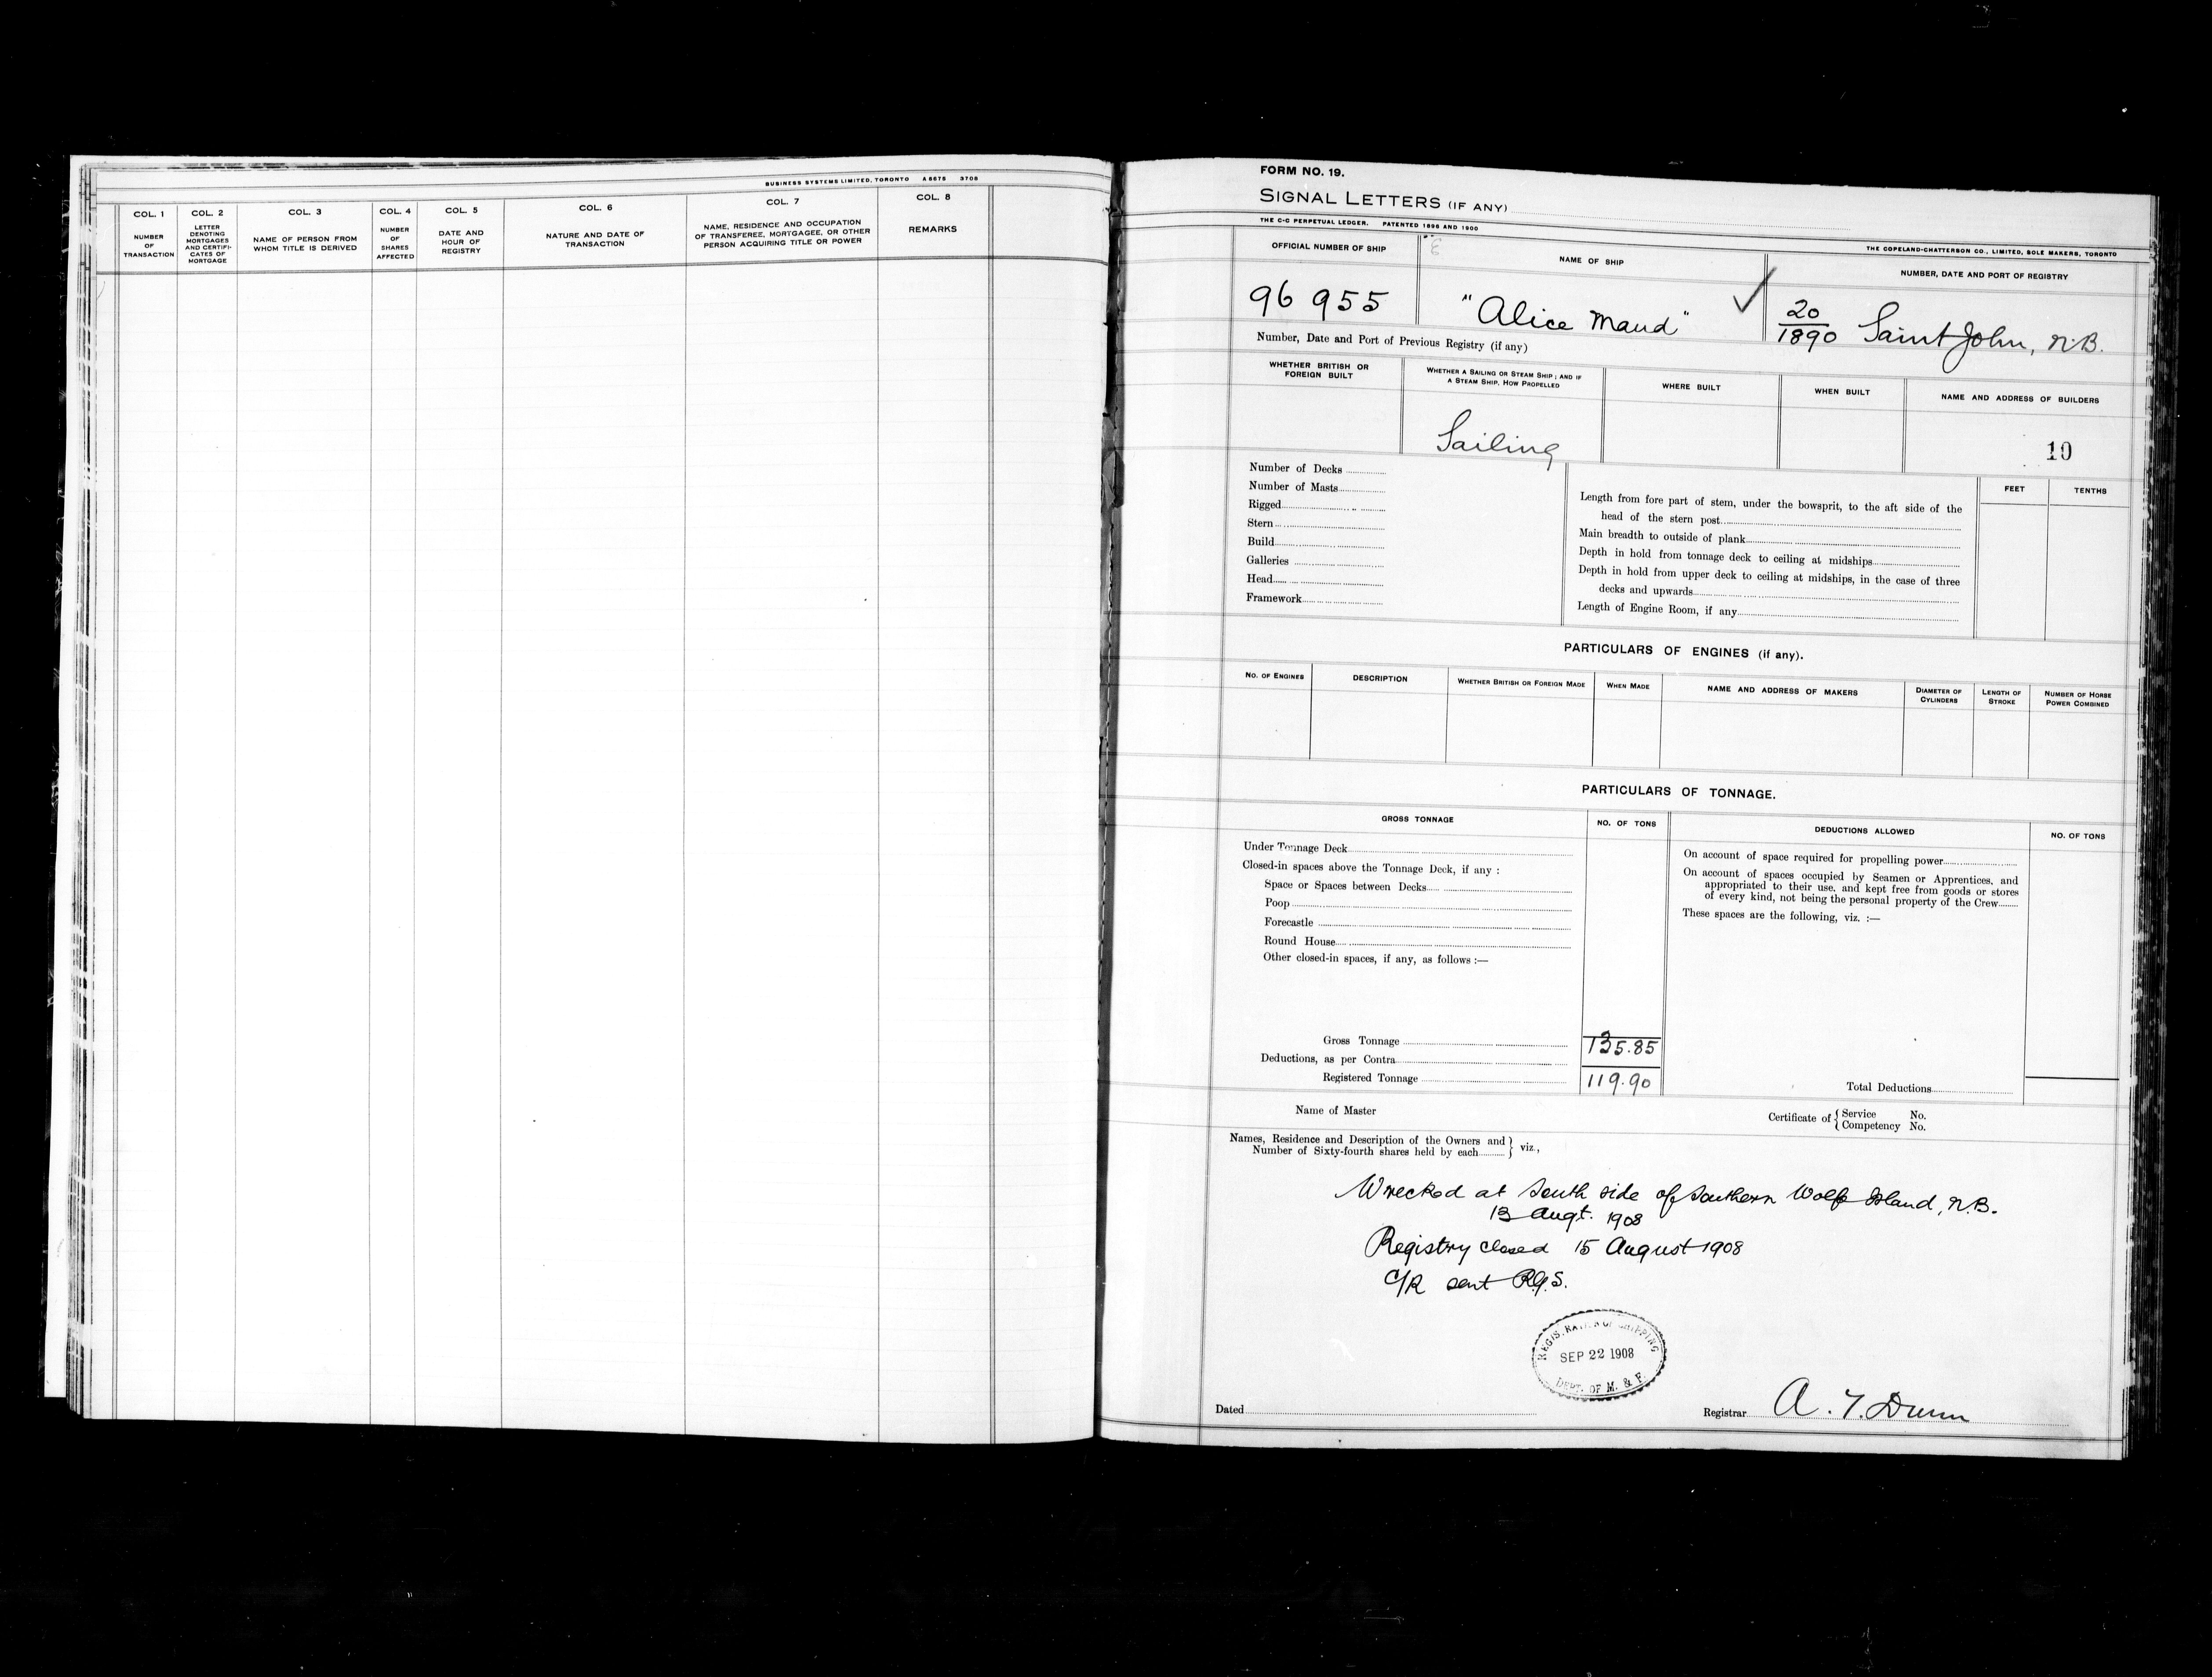 BUSINESS SYSTEMS LIMITED, TORONTO A 6676 3708
COL. 1 COL. 2 COL. 3 COL. 4 COL. 5 COL. 6 COL. 7 COL. 8
NUMBER OF TRANSACTION
LETTER DENOTING MORTGAGES AND CERTIFI- CATES OF MORTGAGE
NAME OF PERSON FROM WHOM TITLE IS DERIVED
NUMBER OF SHARES AFFECTED
DATE AND HOUR OF REGISTRY
NATURE AND DATE OF TRANSACTION
NAME, RESIDENCE AND OCCUPATION OF TRANSFEREE, MORTGAGEE, OR OTHER PERSON ACQUIRING TITLE OR POWER
REMARKS
FORM NO. 19.
SIGNAL LETTERS (IF ANY)
THE C-C PERPETUAL LEDGER. PATENTED 1896 AND 1900
THE COPELAND-CHATTERSON CO., LIMITED, SOLE MAKERS, TORONTO
OFFICIAL NUMBER OF SHIP
NAME OF SHIP
NUMBER, DATE AND PORT OF REGISTRY
96 955
"Alice Maud"
20/1890 Saint John, N.B.
Number, Date and Port of Previous Registry (if any)
WHETHER BRITISH OR FOREIGN BUILT
WHETHER A SAILING OR STEAM SHIP; AND IF A STEAM SHIP, HOW PROPELLED
WHERE BUILT
WHEN BUILT
NAME AND ADDRESS OF BUILDERS
Sailing
10
Number of Decks
Number of Masts
Rigged
Stern
Build
Galleries
Head
Framework
FEET TENTHS
Length from fore part of stem, under the bowsprit, to the aft side of the
head of the stern post
Main breadth to outside of plank
Depth in hold from tonnage deck to ceiling at midships
Depth in hold from upper deck to ceiling at midships, in the case of three
decks and upwards
Length of Engine Room, if any
PARTICULARS OF ENGINES (if any).
NO. OF ENGINES
DESCRIPTION
WHETHER BRITISH OR FOREIGN MADE
WHEN MADE
NAME AND ADDRESS OF MAKERS
DIAMETER OF CYLINDERS
LENGTH OF STROKE
NUMBER OF HORSE POWER COMBINED
PARTICULARS OF TONNAGE.
GROSS TONNAGE
NO. OF TONS
DEDUCTIONS ALLOWED
NO. OF TONS
Under Tonnage Deck
Closed-in spaces above the Tonnage Deck, if any :
Space or Spaces between Decks
Poop
Forecastle
Round House
Other closed-in spaces, if any, as follows :—
On account of space required for propelling power
On account of spaces occupied by Seamen or Apprentices, and
appropriated to their use, and kept free from goods or stores
of every kind, not being the personal property of the Crew
These spaces are the following, viz. :—
Gross Tonnage 135.85
Deductions, as per Contra
Registered Tonnage 119.90
Total Deductions
Name of Master
Certificate of { Service No.
Competency No.
Names, Residence and Description of the Owners and } viz.,
Number of Sixty-fourth shares held by each
Wrecked at South side of Southern Wolf Island, N.B.
13 Augt. 1908
Registry closed 15 August 1908
C/R sent R.G.S.
REGISTRATION OF SHIPPING
SEP 22 1908
DEPT. OF M. & F.
Dated
Registrar A. T. Dunn